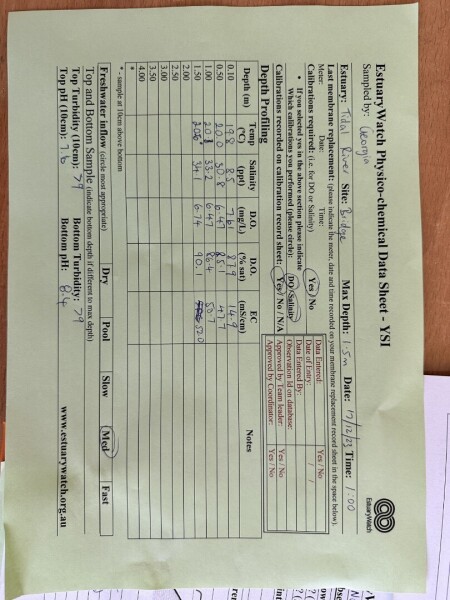 EstuaryWatch Physico-chemical Data Sheet - YSI
EstuaryWatch
Sampled by: Georgia
Estuary: Tidal River Site: Bridge Max Depth: 1.5m Date: 17/12/23 Time: 1:00
Last membrane replacement: (please indicate the meter, date and time recorded on your membrane replacement record sheet in the space below).
Meter: Date: Time:
Calibrations required: (i.e. for DO or Salinity) Yes / No
• If you selected yes in the above section please indicate
Which calibrations you performed (please circle): DO / Salinity
Calibrations recorded on calibration record sheet: Yes / No / N/A
Data Entered: Yes / No
Date of Entry: / /
Data Entered By:
Observation Id on database:
Approved by Team leader: Yes / No
Approved by Coordinator: Yes / No
Depth Profiling
Depth (m) Temp (°C) Salinity (ppt) D.O. (mg/L) D.O. (% sat) EC (mS/cm) Notes
0.10 19.8 8.5 7.61 87.9 14.9
0.50 20.0 30.8 6.47 85.1 47.7
1.00 20.1 33.2 6.47 86.4 50.7
1.50 34.1 6.74 90.1 52.0
2.00
2.50
3.00
3.50
4.00
*
* - sample at 10cm above bottom
Freshwater Inflow (circle most appropriate) Dry Pool Slow Med Fast
Top and Bottom Sample (indicate bottom depth if different to max depth)
Top Turbidity (10cm): >9 Bottom Turbidity: >9
Top pH (10cm): 7.6 Bottom pH: 8.4
www.estuarywatch.org.au